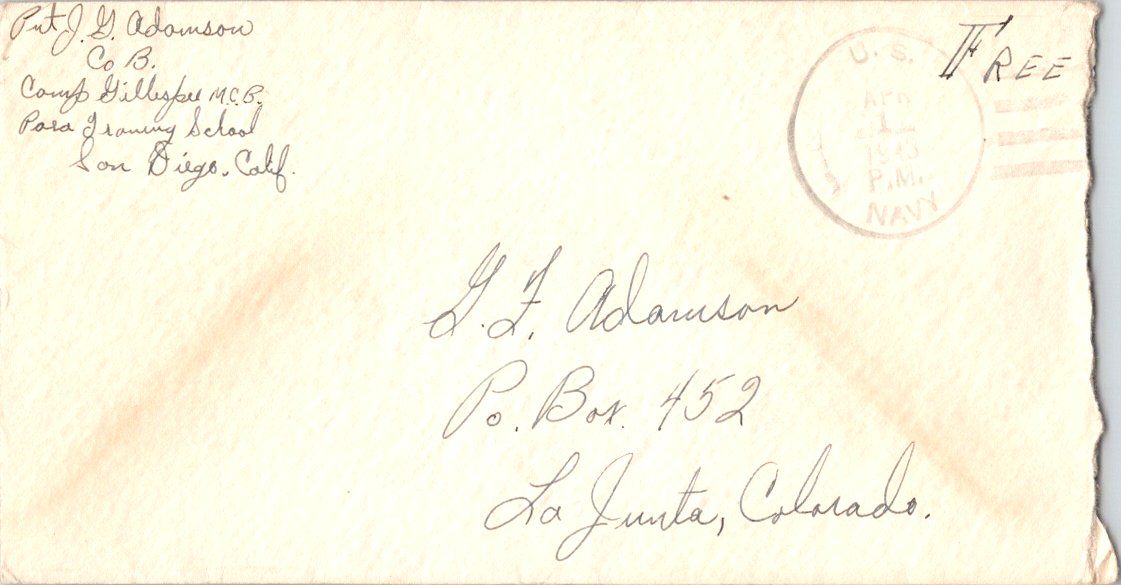 Pvt J. G. Adamson
Co B.
Camp Gillespie M.C.B.
Para Traning School
San Diego, Calif.
FREE
U. S.
APR
1
1943
P.M.
NAVY
G. F. Adamson
Po. Box. 452
La Junta, Colorado.